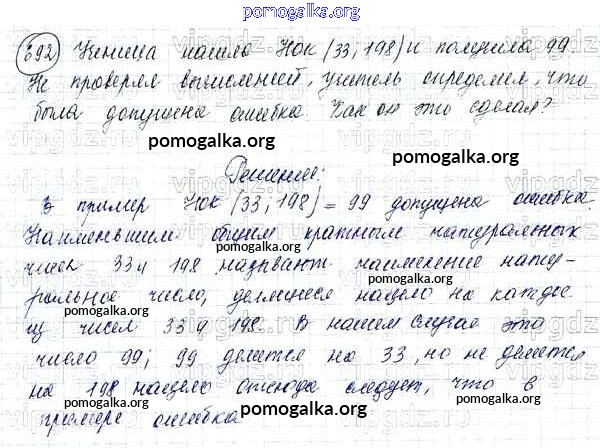 pomogalka.org
392 Ученица нашла Нок (33; 198) и получила 99.
Не проверяя вычислений, учитель определил, что
была допущена ошибка. Как он это сделал?
pomogalka.org pomogalka.org
Решение:
В пример Нок (33; 198) = 99 допущена ошибка.
Наименьшим общим кратным натуральных
pomogalka.org
чисел 33 и 198 называют наименьшее нату-
ральное число, делящееся нацело на каждое
pomogalka.org pomogalka.org
из чисел 33 и 198. В нашем случае это
число 99; 99 делится на 33, но не делится
pomogalka.org
на 198 нацело отсюда следует, что в
примере ошибка
pomogalka.org